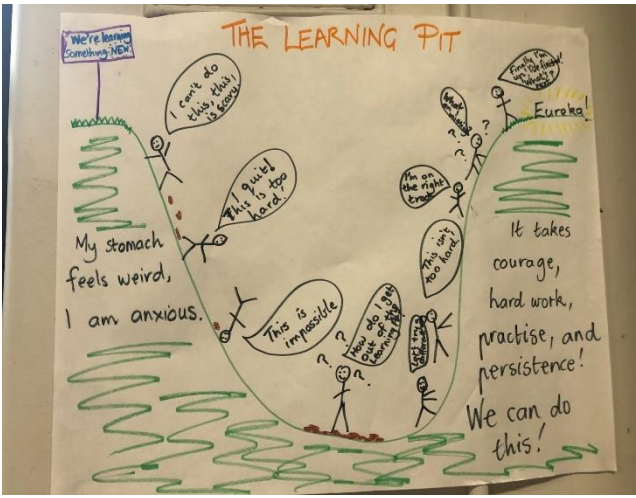 THE LEARNING PIT
We're learning
Something NEW.
I can't do
this, this
is scary.
I quit!
This is too
hard!
My stomach
feels weird,
I am anxious.
This is
impossible
? ? ?
How do I get
out of the
Learning Pit?
This isn't
too hard!
I'm on
the right
track
? ? ? ?
Finally I'm
What's
next
Eureka!
It takes
courage,
hard work,
practise, and
persistence!
We can do
this!